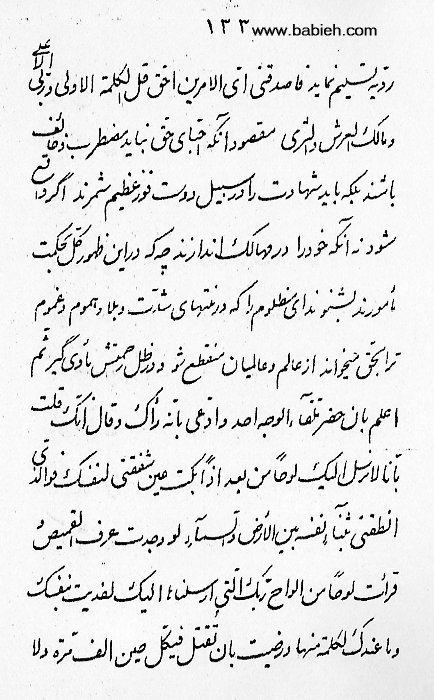 ١٣٣ www.babieh.com
ردّیه تسلیم نماید فاصدقنی ایّ الامرین احقّ قل الکلمة الاولی و ربّی الاعلی
و مالک العرش و الثری مقصود آنکه احبّای حق نباید مضطرب و خائف
باشند بلکه باید شهادت را در سبیل دوست فوز عظیم شمرند اگر واقع
شود نه آنکه خود را در مهالک اندازند چه که در این ظهور کلّ بحکمت
مأمورند بشنو ندای مظلوم را که در منتهای شدّت و بلا و هموم و غموم
ترا بحقّ میخواند از عالم و عالمیان منقطع شو و در ظل رحمتش مأوی گیر ثمّ
اعلم بان حضر تلقآء الوجه احد و ادّعی بانّه رأک و قال انّک قلت
بانّا لانرسل الیک لوحاً من بعد اذاً بکت عین شفقتی لنفسک فوالّذی
انطقنی بثنآء نفسه بین الأرض و السمآء لو وجدت عرف القمیص و
قرأت لوحاً من الواح ربّک الّتی ارسلناها الیک لفدیت بنفسک
و ما عندک لکلمة منها و رضیت بان تقتل فی کلّ حین الف مرّة و لا